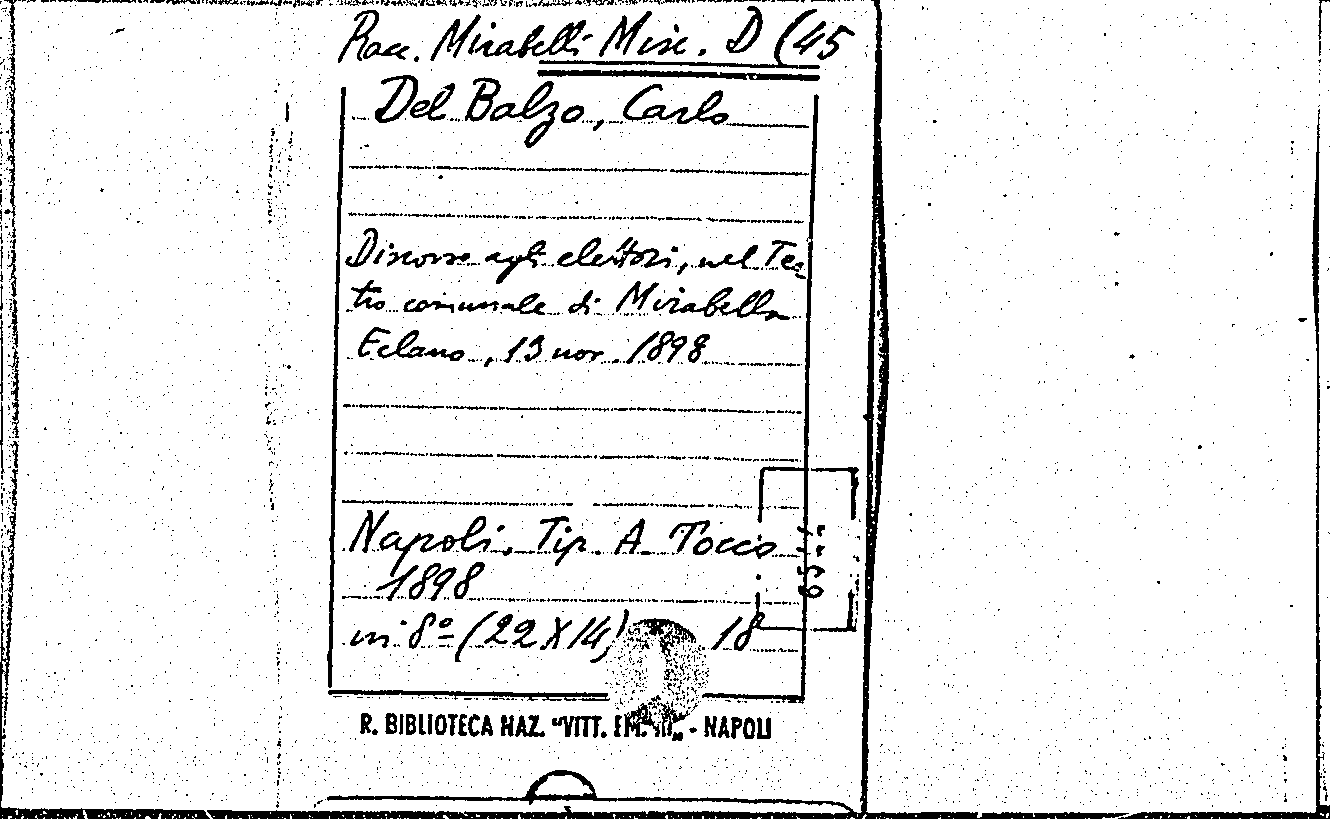 Racc. Mirabelli Misc. D (45
Del Balzo, Carlo
Discorso agli elettori, nel Tea
tro comunale di Mirabella
Eclano, 13 nov. 1898
Napoli. Tip. A. Tocco
1898
in 8º (22 X 14) 18
R. BIBLIOTECA NAZ. "VITT. EM. III„ - NAPOLI